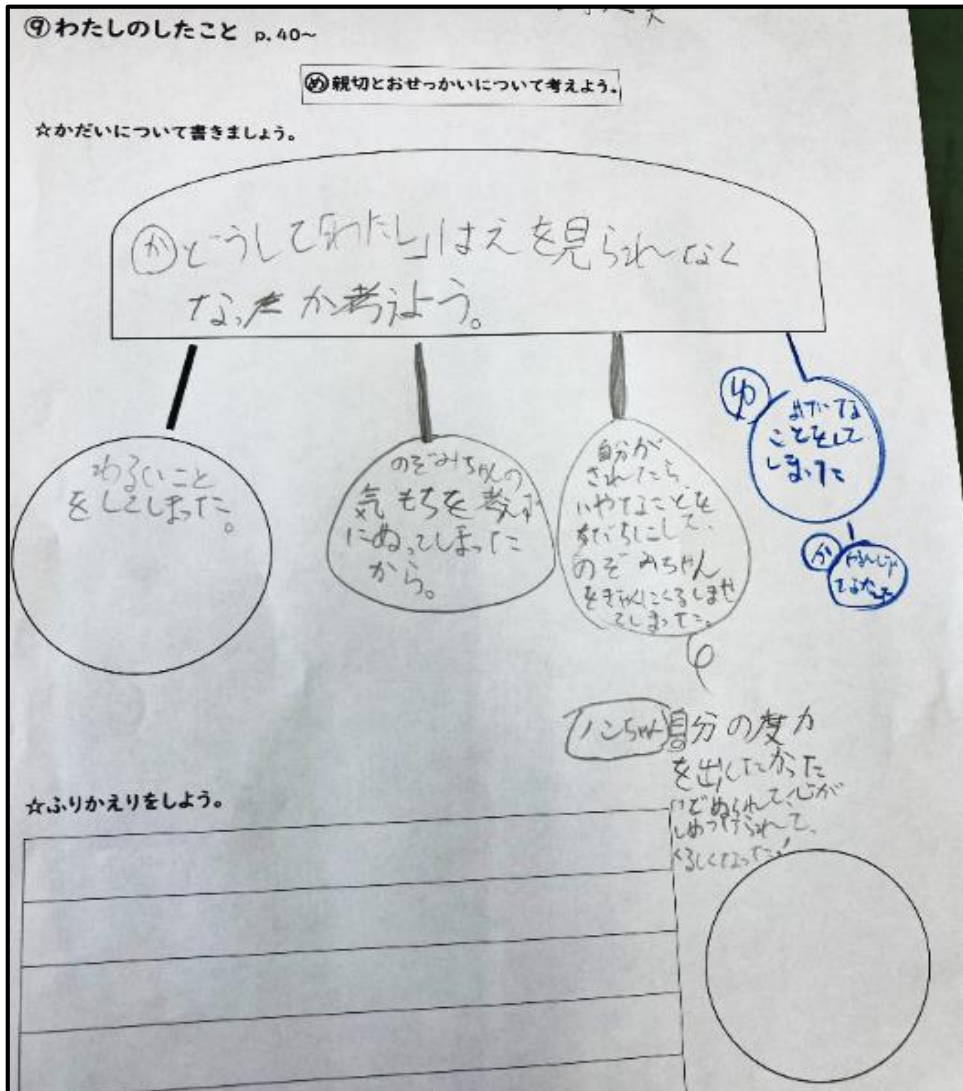 ⑨わたしのしたこと p.40~
め 親切とおせっかいについて考えよう。
☆かだいについて書きましょう。
か どうして「わたし」はえを見られなく
なったか考えよう。
わるいこと
をしてしまった。
のぞみちゃんの
気もちを考えず
にぬってしまった
から。
自分が
されたら、
いやなことを
のぞみちゃん
をぎゃくにくるしませ
てしまった。
ゆ
ことをして
しまった
か
ノンちゃん
自分の度力
を出したかった
けどぬられて、心が
しめつけられて、
くるしくなった!
☆ふりかえりをしよう。